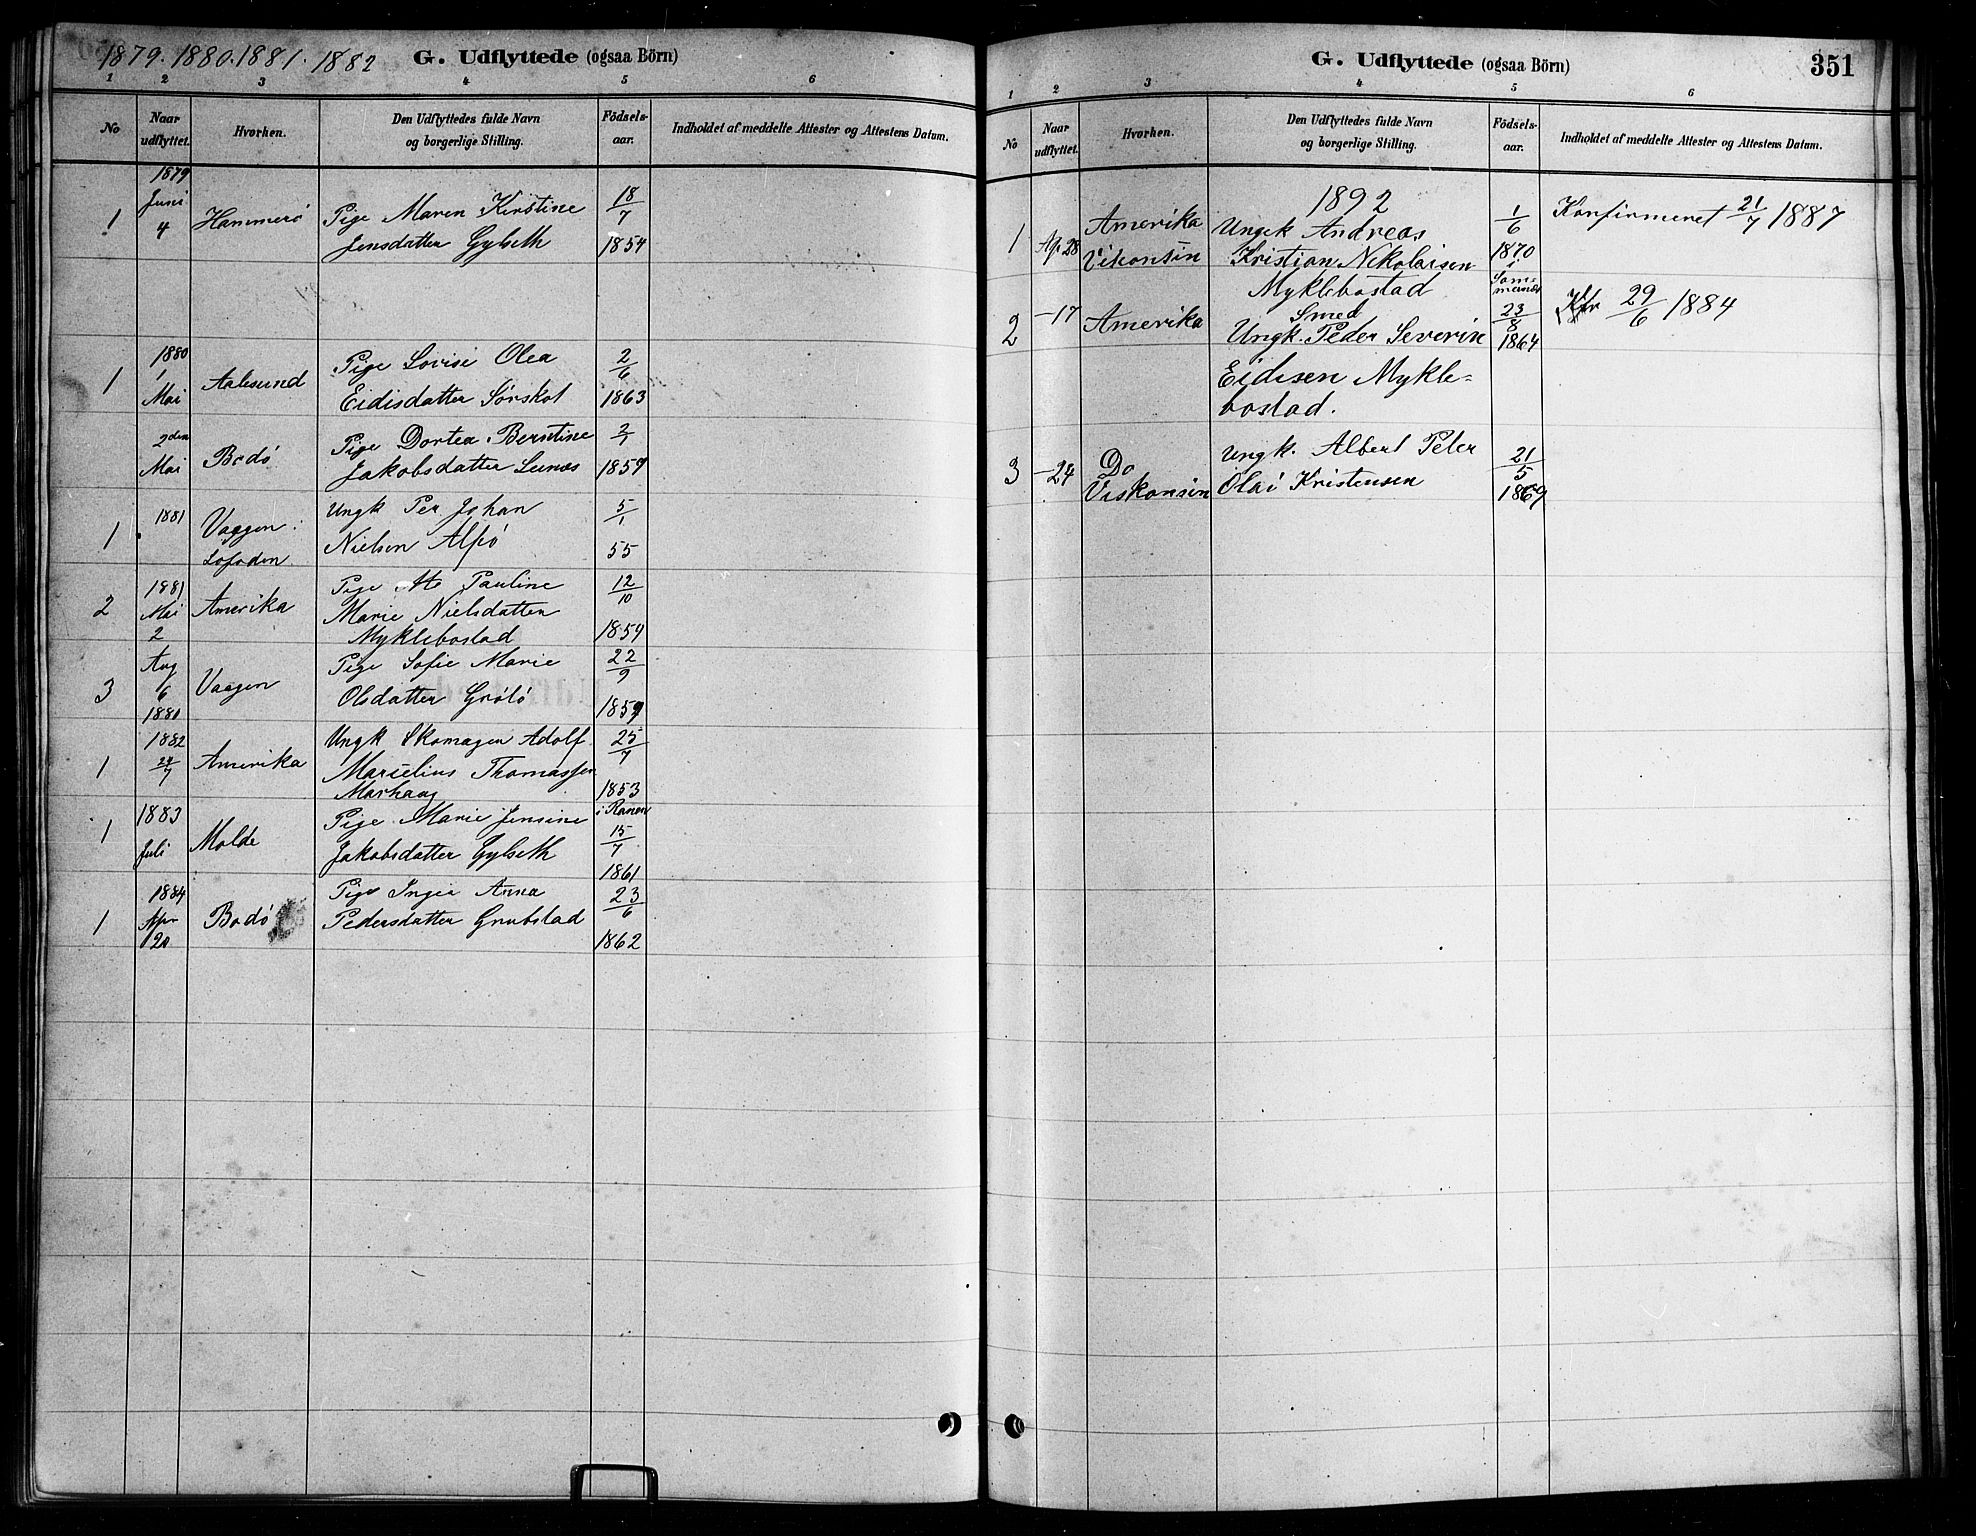 1879. 1880. 1881. 1882
G. Udflyttede (ogsaa Börn)
1 2 3 4 5 6
No
Naar udflyttet.
Hvorhen.
Den Udflyttedes fulde Navn og borgerlige Stilling.
Födsels-aar.
Indholdet af meddelte Attester og Attestens Datum.
1 1879 Juni 4 Hammerö Pige Maren Kirstine 18/7
Jensdatter Gylseth 1854
1 1880 1 Mai Aalesund Pige Lovise Olea 2/6
Eidisdatter Sørskot 1863
2den Mai Bodö Pige Dortea Berntine 2/1
Jakobsdatter Leinæs 1857
1 1881 Vaagen Ungk Per Johan 5/1
Lofoden Nielsen Alpö 55
2 1881 Mai 2 Amerika Pige Pauline 12/10
Marie Nielsdatter
Myklebostad 1859
3 Aug 6 1880 Vaagen Pige Sofie Marie 22/9
Olsdatter Grölö 1859
1 1882 24/7 Amerika Ungk Skomager Adolf 25/7
Marselius Thomassen
Marhaug 1853
1 1883 Juli Molde Pige Marie Jensine i Ranen 15/7
Jakobsdatter Gylseth 1861
1 1884 Apr 20 Bodö Pige Ingea Anna 23/6
Pedersdatter Grubstad 1862
G. Udflyttede (ogsaa Börn)
351
1 2 3 4 5 6
No
Naar udflyttet.
Hvorhen.
Den Udflyttedes fulde Navn og borgerlige Stilling.
Födsels-aar.
Indholdet af meddelte Attester og Attestens Datum.
1892
1 Ap. 28 Amerika Ungk Andreas 1/6 Konfirmeret 21/7 1887
Vikonsin Kristian Nikolaisen 1870
Myklebostad i
2 -17 Amerika Smed 23/8 Kfr 29/6 1884
Ungk. Peder Severin 1864
Eidisen Mykle=
bostad.
3 -24 Do Ungk. Albert Peter 21/5
Viskonsin Olai Kristensen 1869